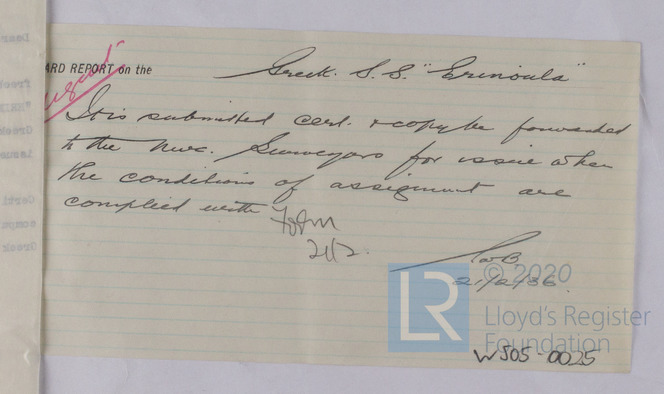 ARD REPORT on the Greek. S.S. "Erinoula"
It is submitted cert. & copy be forwarded
to the Nwc. Surveyors for issue when
the conditions of assignment are
complied with
21/2.
21/2/36
LR © 2020
Lloyd's Register
Foundation
W505-0025